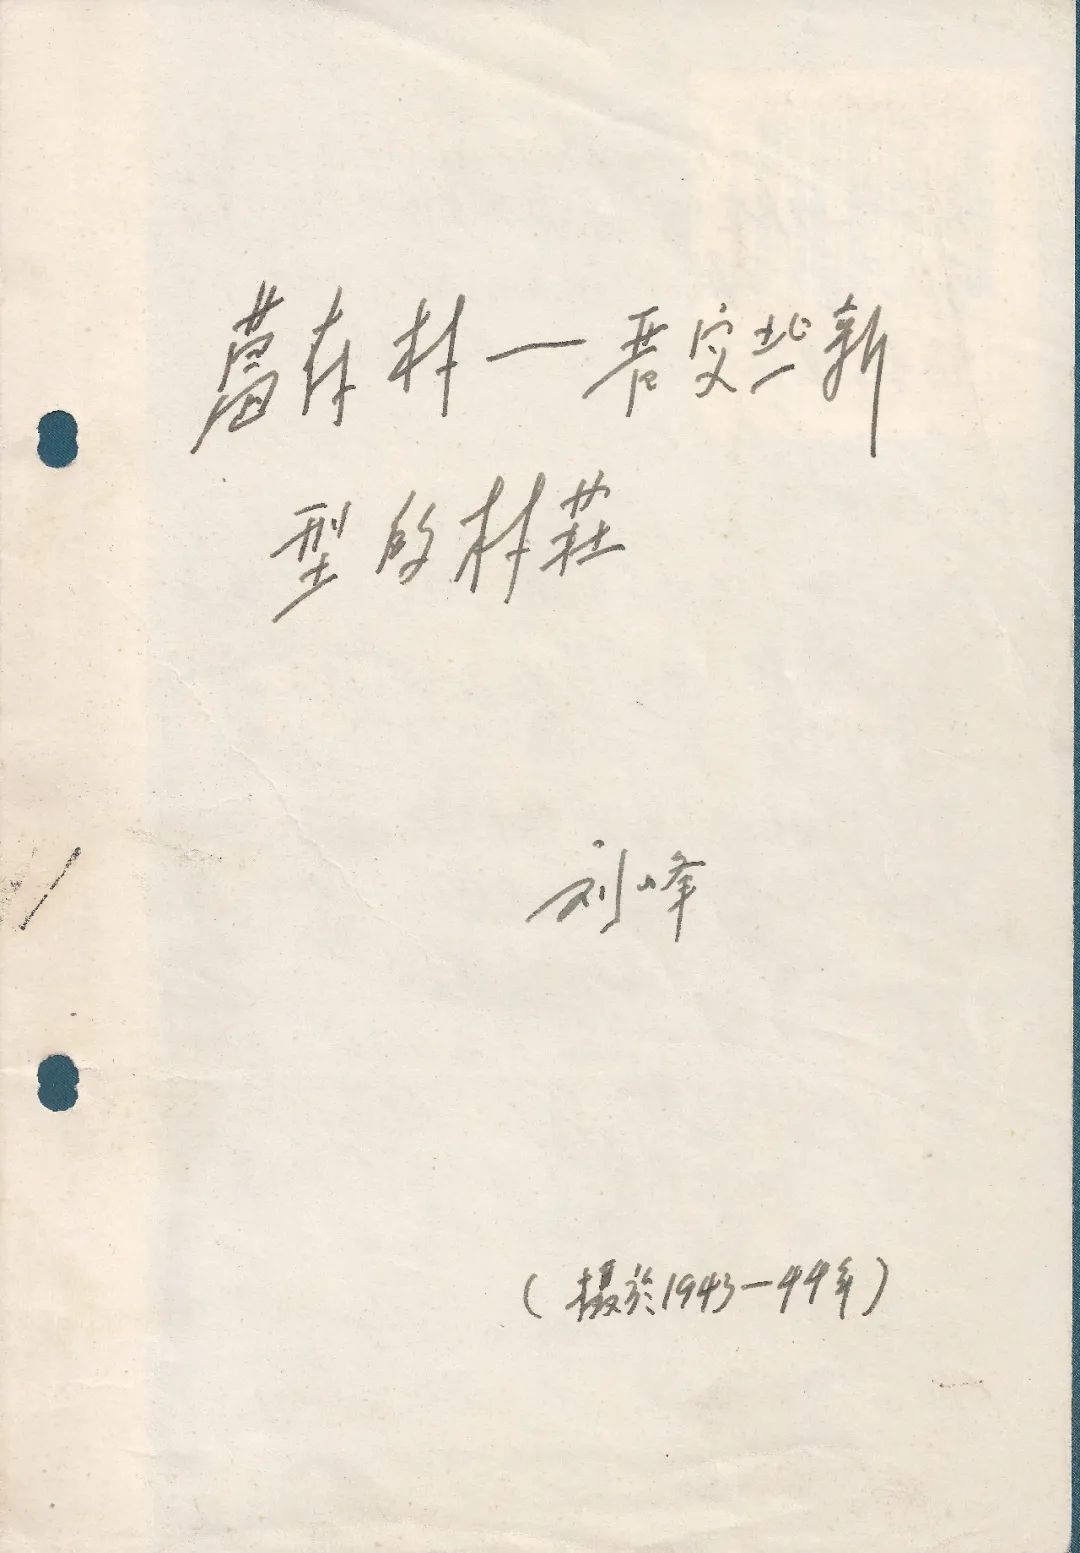 葛存村—晋察冀新
型的村莊
刘峰
(摄於1943—44年)